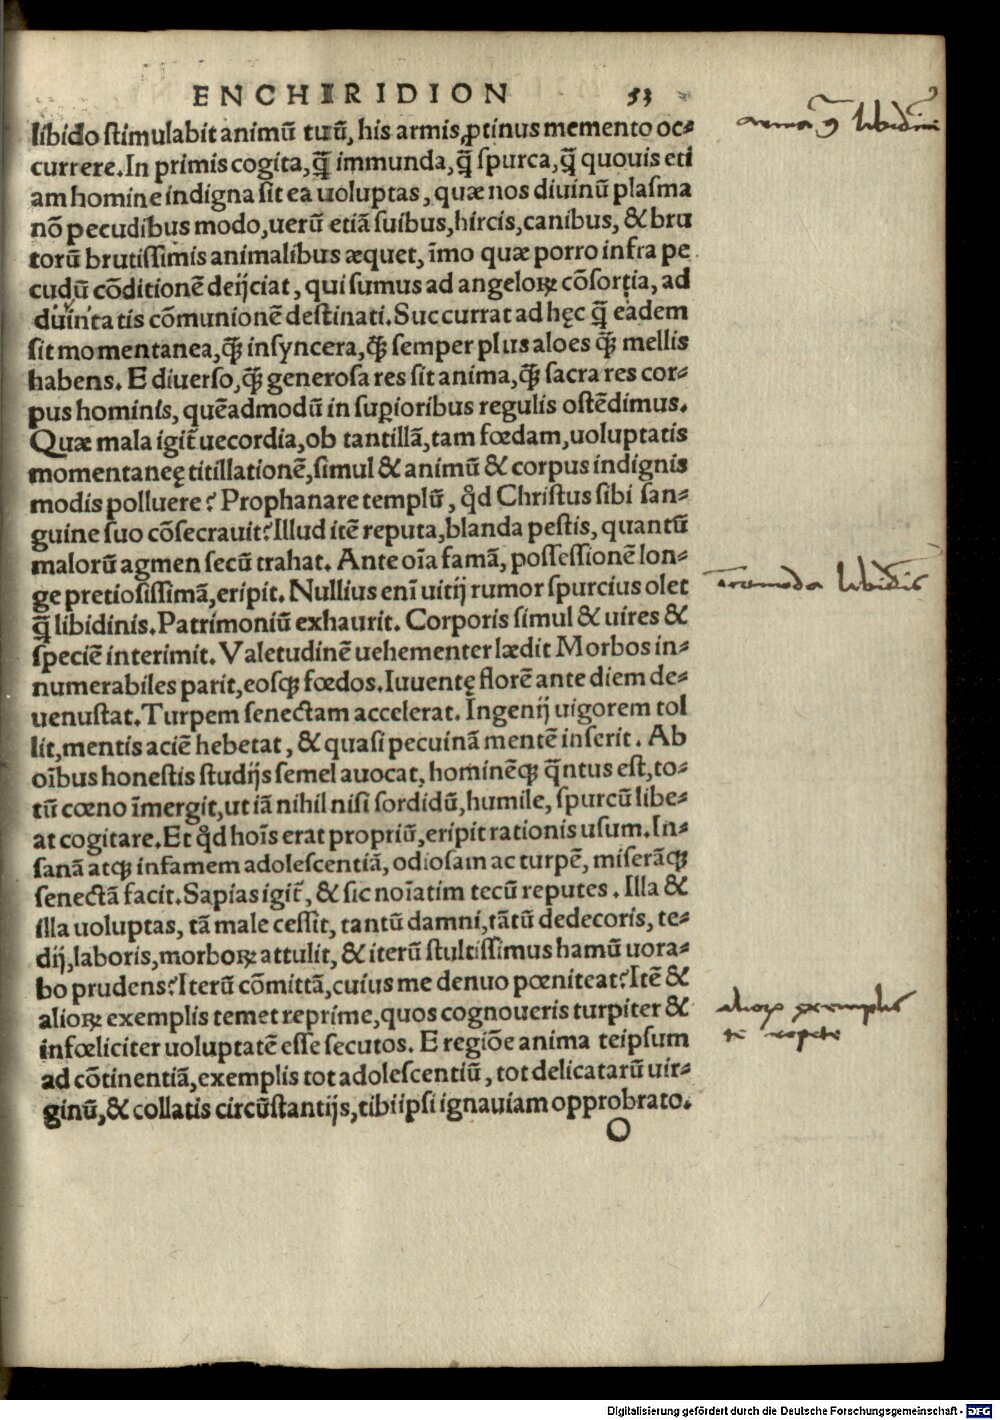 ENCHIRIDION 53
libido stimulabit animū tuū, his armis ꝓtinus memento oc⸗
currere. In primis cogita, q̃ immunda, q̃ spurca, q̃ quouis eti
am homine indigna sit ea uoluptas, quæ nos diuinū plasma
nō pecudibus modo, uerū etiā suibus, hircis, canibus, & bru
torū brutissimis animalibus æquet, īmo quæ porro infra pe
cudū cōditionē deijciat, qui sumus ad angeloꝝ cōsortia, ad
diuinitatis cōmunionē destinati. Succurrat ad hęc q̃ eadem
sit momentanea, q̃ insyncera, q̃ semper plus aloes q̃ mellis
habens. E diuerso, q̃ generosa res sit anima, q̃ sacra res cor⸗
pus hominis, quēadmodū in suꝑioribus regulis ostēdimus.
Quæ mala igit̃ uecordia, ob tantillā, tam fœdam, uoluptatis
momentaneę titillationē, simul & animū & corpus indignis
modis polluere? Prophanare templū, qd̛ Christus sibi san⸗
guine suo cōsecrauit? Illud itē reputa, blanda pestis, quantū
malorū agmen secū trahat. Ante oīa famā, possessionē lon⸗
ge pretiosissimā, eripit. Nullius enī uitij rumor spurcius olet
q̃ libidinis. Patrimoniū exhaurit. Corporis simul & uires &
speciē interimit. Valetudinē uehementer lædit Morbos in⸗
numerabiles parit, eosqꝫ fœdos. Iuuentę florē ante diem de⸗
uenustat. Turpem senectam accelerat. Ingenij uigorem tol
lit, mentis aciē hebetat, & quasi pecuinā mentē inserit. Ab
oībus honestis studijs semel auocat, hominēqꝫ q̃ntus est, to⸗
tū cœno īmergit, ut iā nihil nisi sordidū, humile, spurcū libe⸗
at cogitare. Et qd̛ hoīs erat propriū, eripit rationis usum. In⸗
sanā atqꝫ infamem adolescentiā, odiosam ac turpē, miserāqꝫ
senectā facit. Sapias igit̃, & sic noīatim tecū reputes. Illa &
illa uoluptas, tā male cessit, tantū damni, tātū dedecoris, te⸗
dij, laboris, morboꝝ attulit, & iterū stultissimus hamū uora⸗
bo prudens? Iterū cōmittā, cuius me denuo pœniteat? Itē &
alioꝝ exemplis temet reprime, quos cognoueris turpiter &
infœliciter uoluptatē esse secutos. E regiōe anima teipsum
ad cōtinentiā, exemplis tot adolescentiū, tot delicatarū uir⸗
ginū, & collatis circūstantijs, tibiipsi ignauiam opprobrato.
O
arma ꝯ̃ libidinē
incōmoda libidīs
alioꝝ exemplis
Digitalisierung gefördert durch die Deutsche Forschungsgemeinschaft - DFG